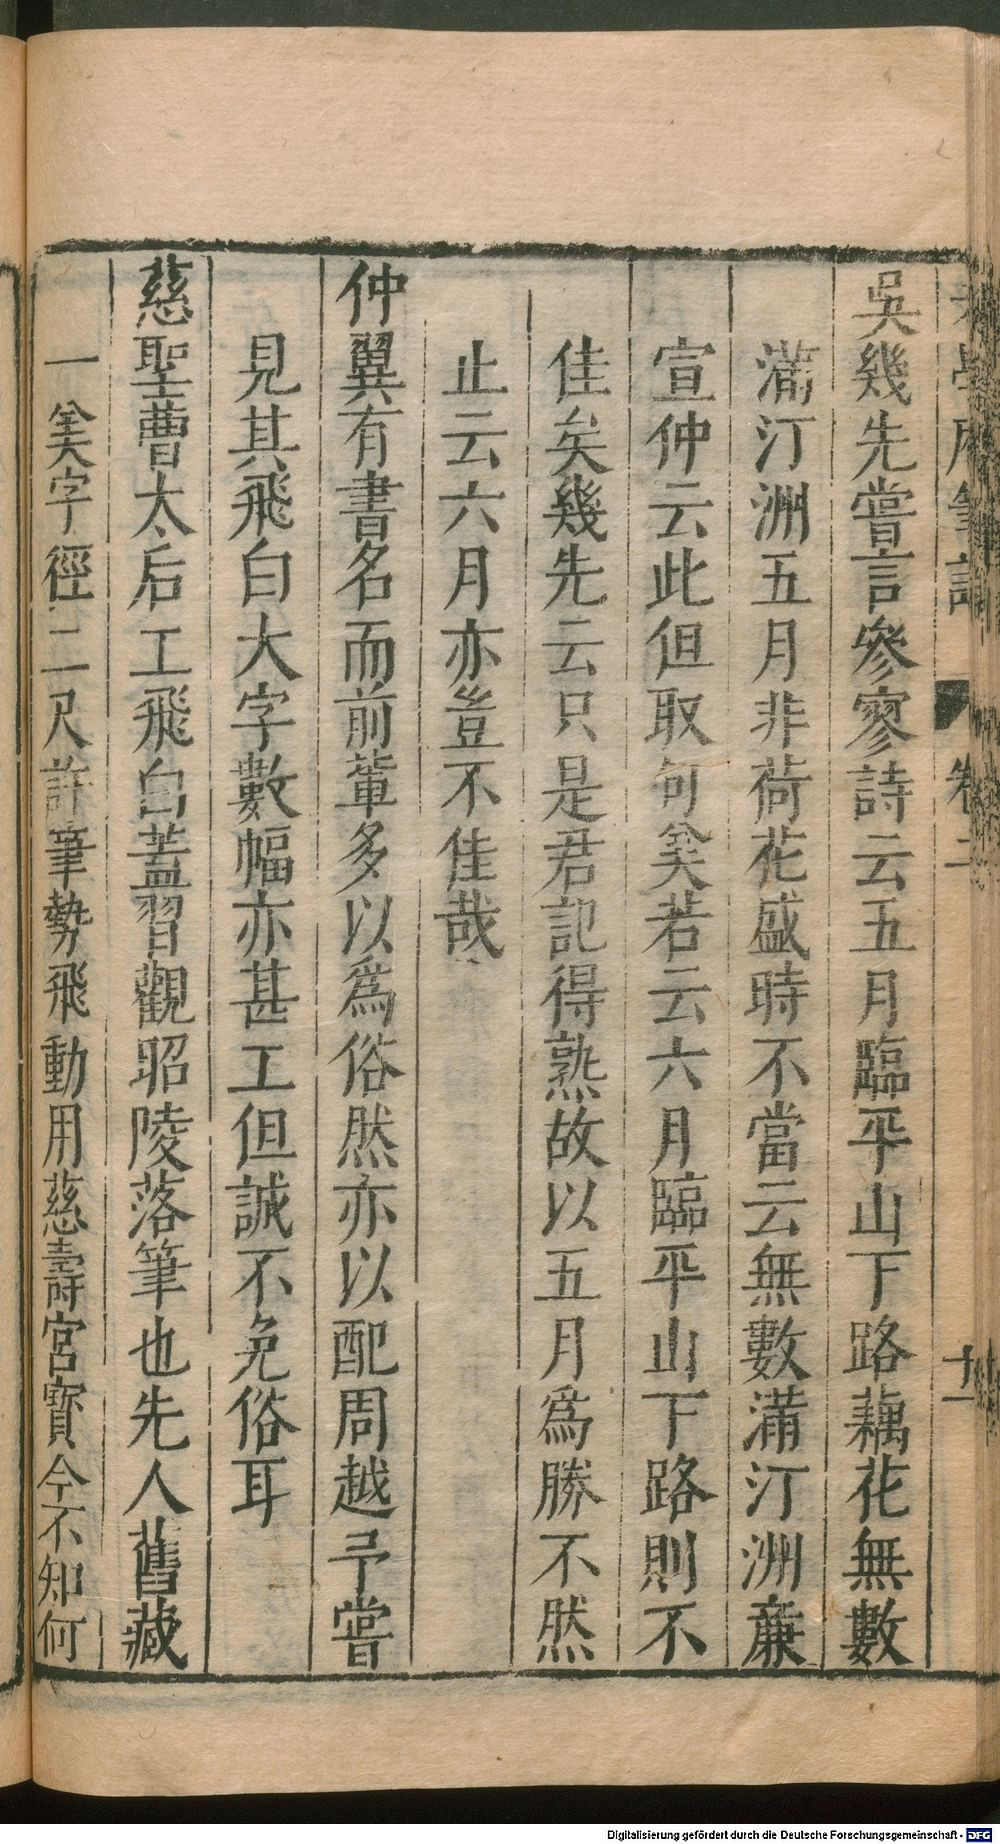 老學庵筆記 卷二 十一
吳幾先嘗言參寥詩云五月臨平山下路藕花無數
滿汀洲五月非荷花盛時不當云無數滿汀洲亷
宣仲云此但取句美若云六月臨平山下路則不
佳矣幾先云只是君記得熟故以五月爲勝不然
止云六月亦豈不佳哉
仲翼有書名而前輩多以爲俗然亦以配周越予嘗
見其飛白大字數幅亦甚工但誠不免俗耳
慈聖曹太后工飛白蓋習觀昭陵落筆也先人舊藏
一美字徑二尺許筆勢飛動用慈壽宮寶今不知何
Digitalisierung gefördert durch die Deutsche Forschungsgemeinschaft - DFG